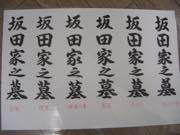 坂田家之墓
坂田家之墓
坂田家之墓
坂田家之墓
坂田家之墓
坂田家之墓